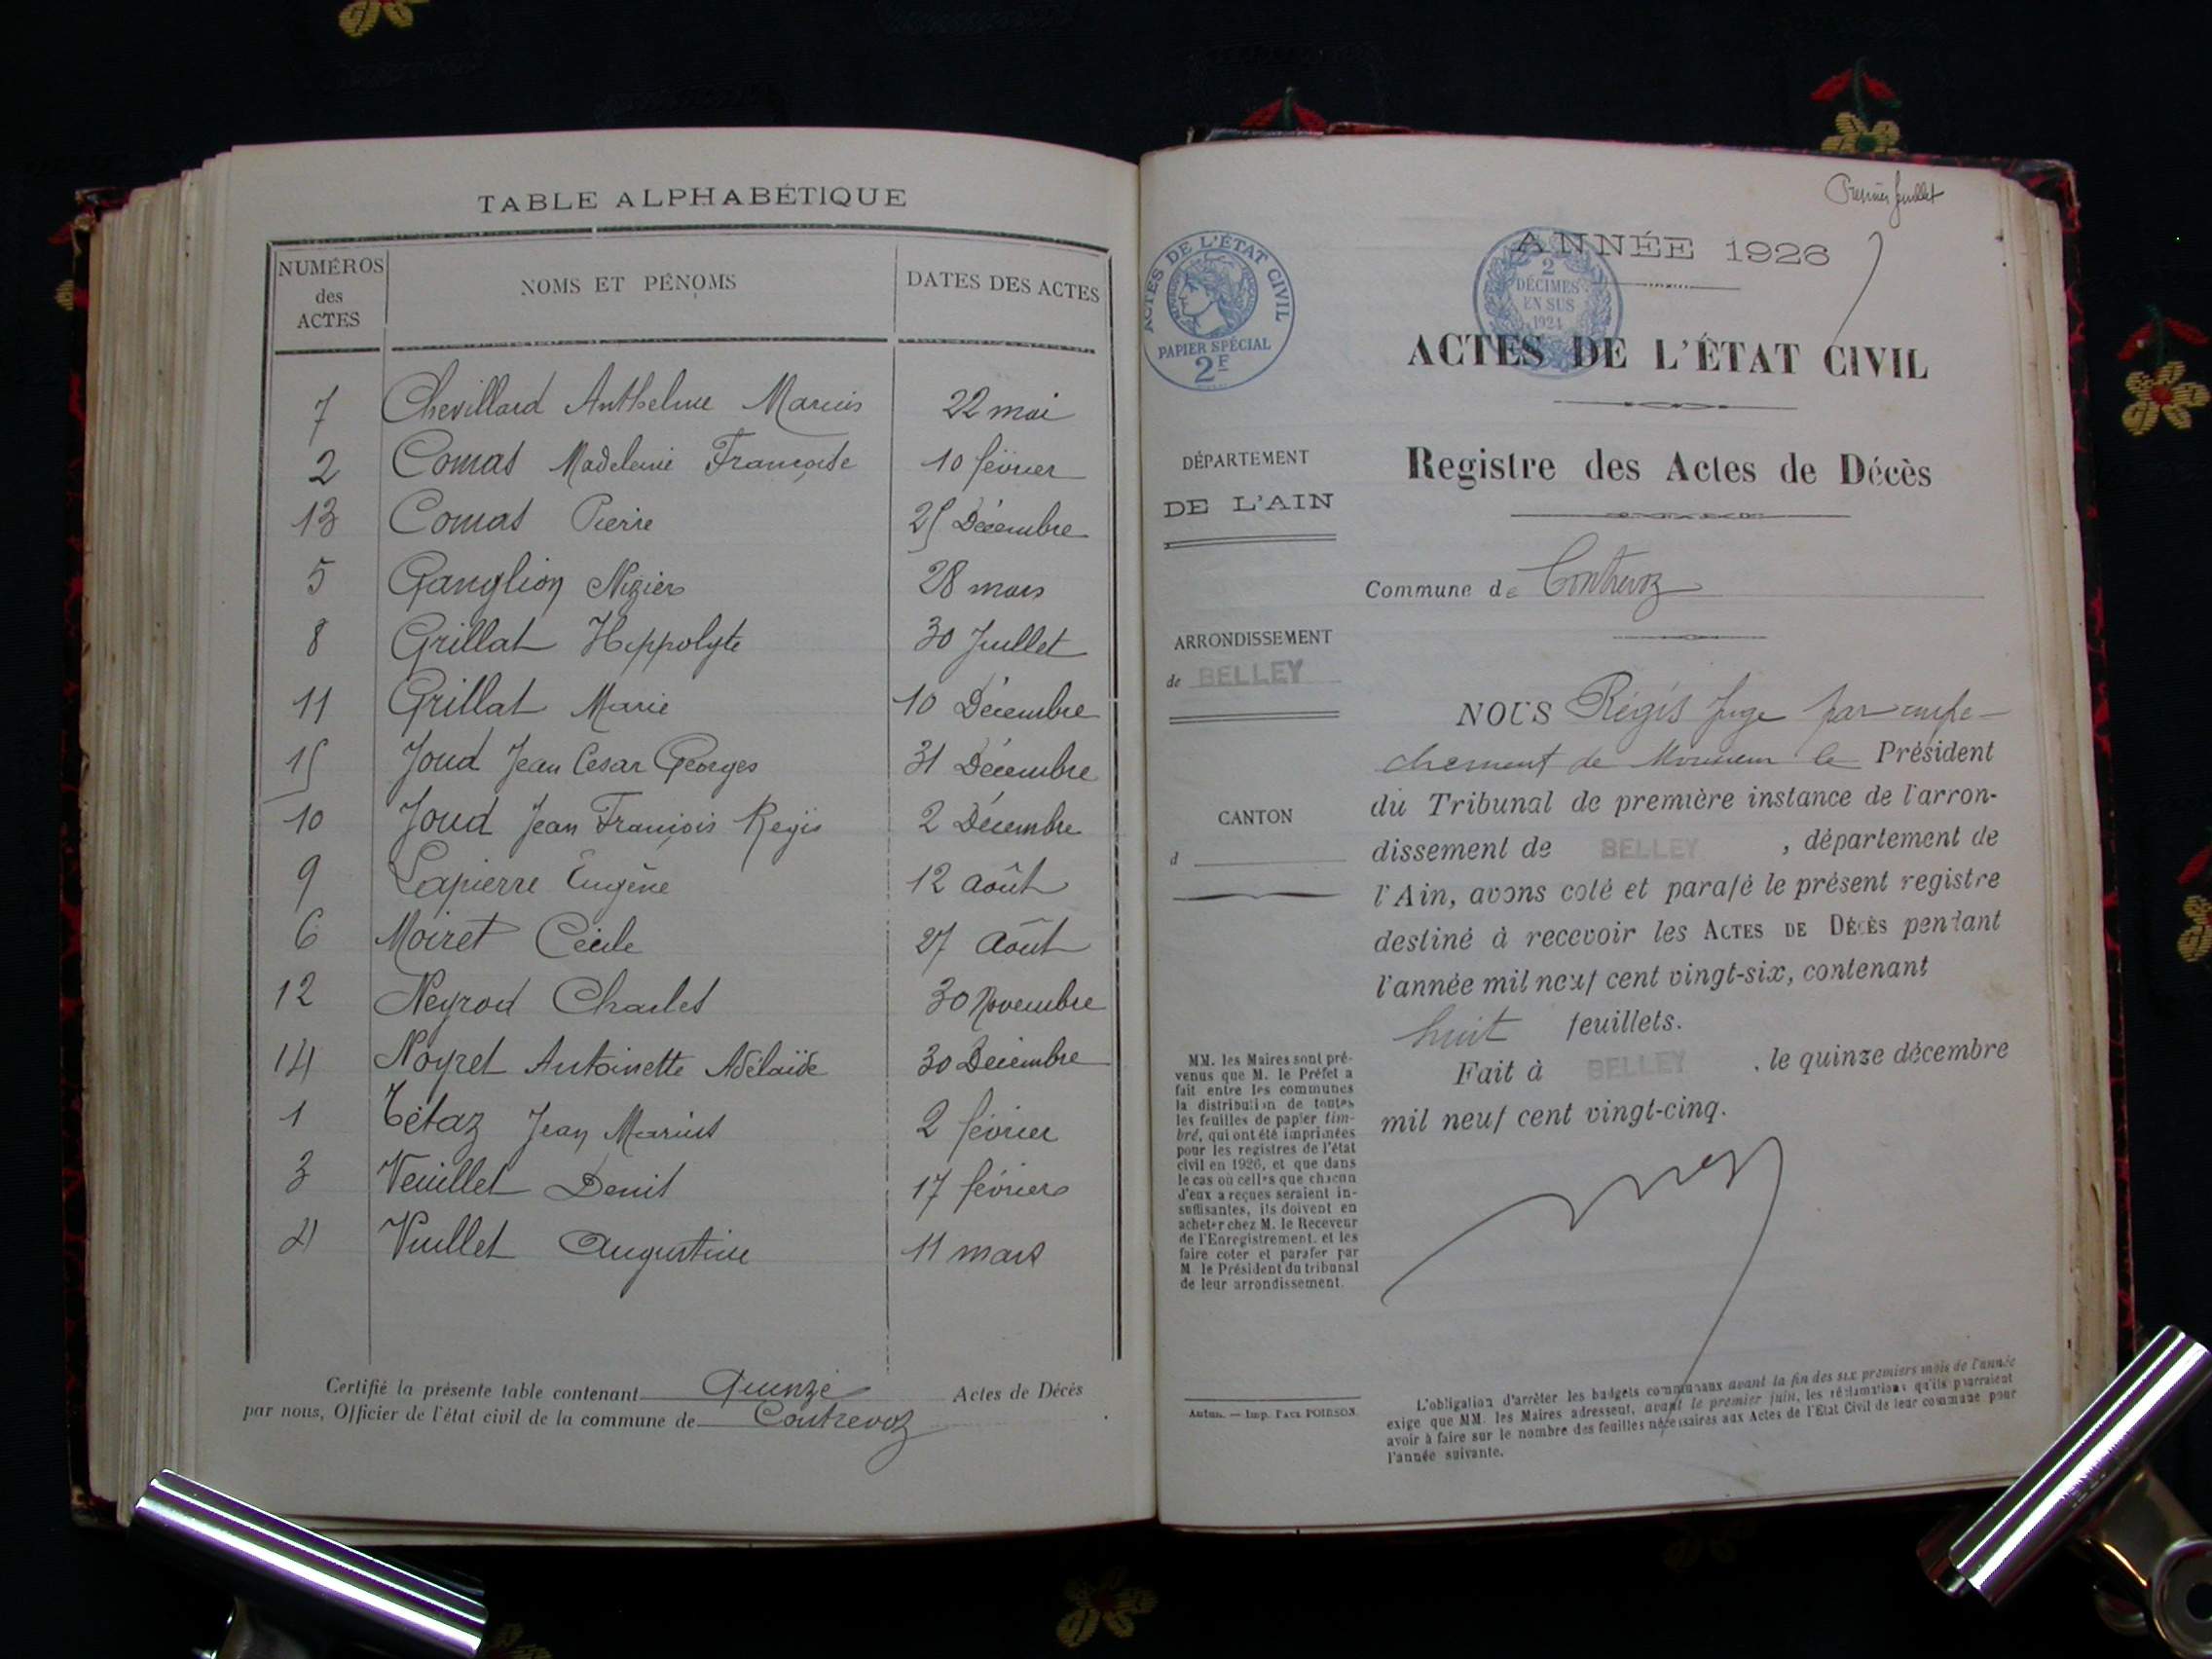 TABLE ALPHABÉTIQUE
NUMÉROS des ACTES NOMS ET PÉNOMS DATES DES ACTES
7 Chevillard Anthelme Marius 22 mai
2 Comas Madeleine Françoise 10 février
13 Comas Pierre 25 Décembre
5 Ganglion Nizier 28 mars
8 Grillat Hippolyte 30 Juillet
11 Grillat Marie 10 Décembre
15 Joud Jean Cesar Georges 31 Décembre
10 Joud Jean François Regis 2 Décembre
9 Lapierre Eugène 12 août
6 Moiret Cécile 27 Août
12 Neyrod Charles 30 Novembre
14 Noyret Antoinette Adélaïde 30 Décembre
1 Tétaz Jean Marius 2 février
3 Veuillet Denis 17 février
4 Vuillet Augustine 11 mars
Certifié la présente table contenant Quinze Actes de Décès
par nous, Officier de l'état civil de la commune de Contrevoz
Premier feuillet
ACTES DE L'ÉTAT CIVIL
PAPIER SPÉCIAL
2F
2
DÉCIMES
EN SUS
1924
ANNÉE 1926
ACTES DE L'ÉTAT CIVIL
Registre des Actes de Décès
DÉPARTEMENT
DE L'AIN
Commune de Contrevoz
ARRONDISSEMENT
de BELLEY
CANTON
d
NOUS Régis Juge par empê-
chement de Monsieur le Président
du Tribunal de première instance de l'arron-
dissement de BELLEY, département de
l'Ain, avons coté et parafé le présent registre
destiné à recevoir les ACTES DE DÉCÈS pendant
l'année mil neuf cent vingt-six, contenant
huit feuillets.
Fait à BELLEY, le quinze décembre
mil neuf cent vingt-cinq.
MM. les Maires sont pré-
venus que M. le Préfet a
fait entre les communes
la distribution de toutes
les feuilles de papier tim-
bré, qui ont été imprimées
pour les registres de l'état
civil en 1926, et que dans
le cas où celles que chacun
d'eux a reçues seraient in-
suffisantes, ils doivent en
acheter chez M. le Receveur
de l'Enregistrement, et les
faire coter et parafer par
M. le Président du tribunal
de leur arrondissement.
Autun. — Imp. PAUL POIRSON.
L'obligation d'arrêter les budgets communaux avant la fin des six premiers mois de l'année
exige que MM. les Maires adressent, avant le premier juin, les réclamations qu'ils pourraient
avoir à faire sur le nombre des feuilles nécessaires aux Actes de l'État Civil de leur commune pour
l'année suivante.